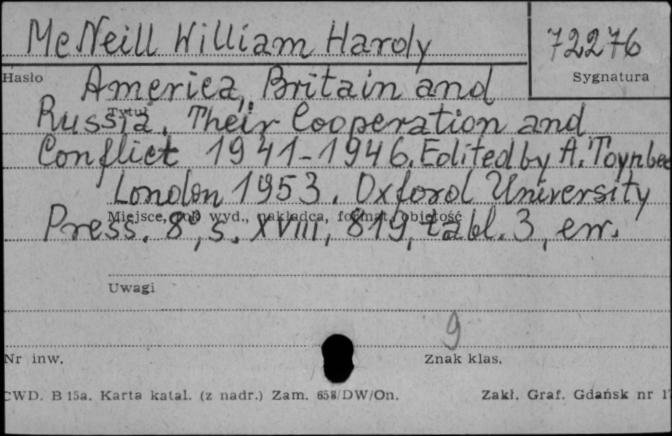 McNeill William Hardy
72276
Hasło
Sygnatura
America, Britain and
Tytuł
Russia. Their Cooperation and
Conflict 1941-1946. Edited by A. Toynbee
London 1953. Oxford University
Miejsce, rok wyd., nakładca, format, objętość
Press. 8°, s. XVIII, 819, tabl. 3, err.
Uwagi
9
Nr inw.
Znak klas.
CWD. B 15a. Karta katal. (z nadr.) Zam. 658/DW/On.
Zakł. Graf. Gdańsk nr